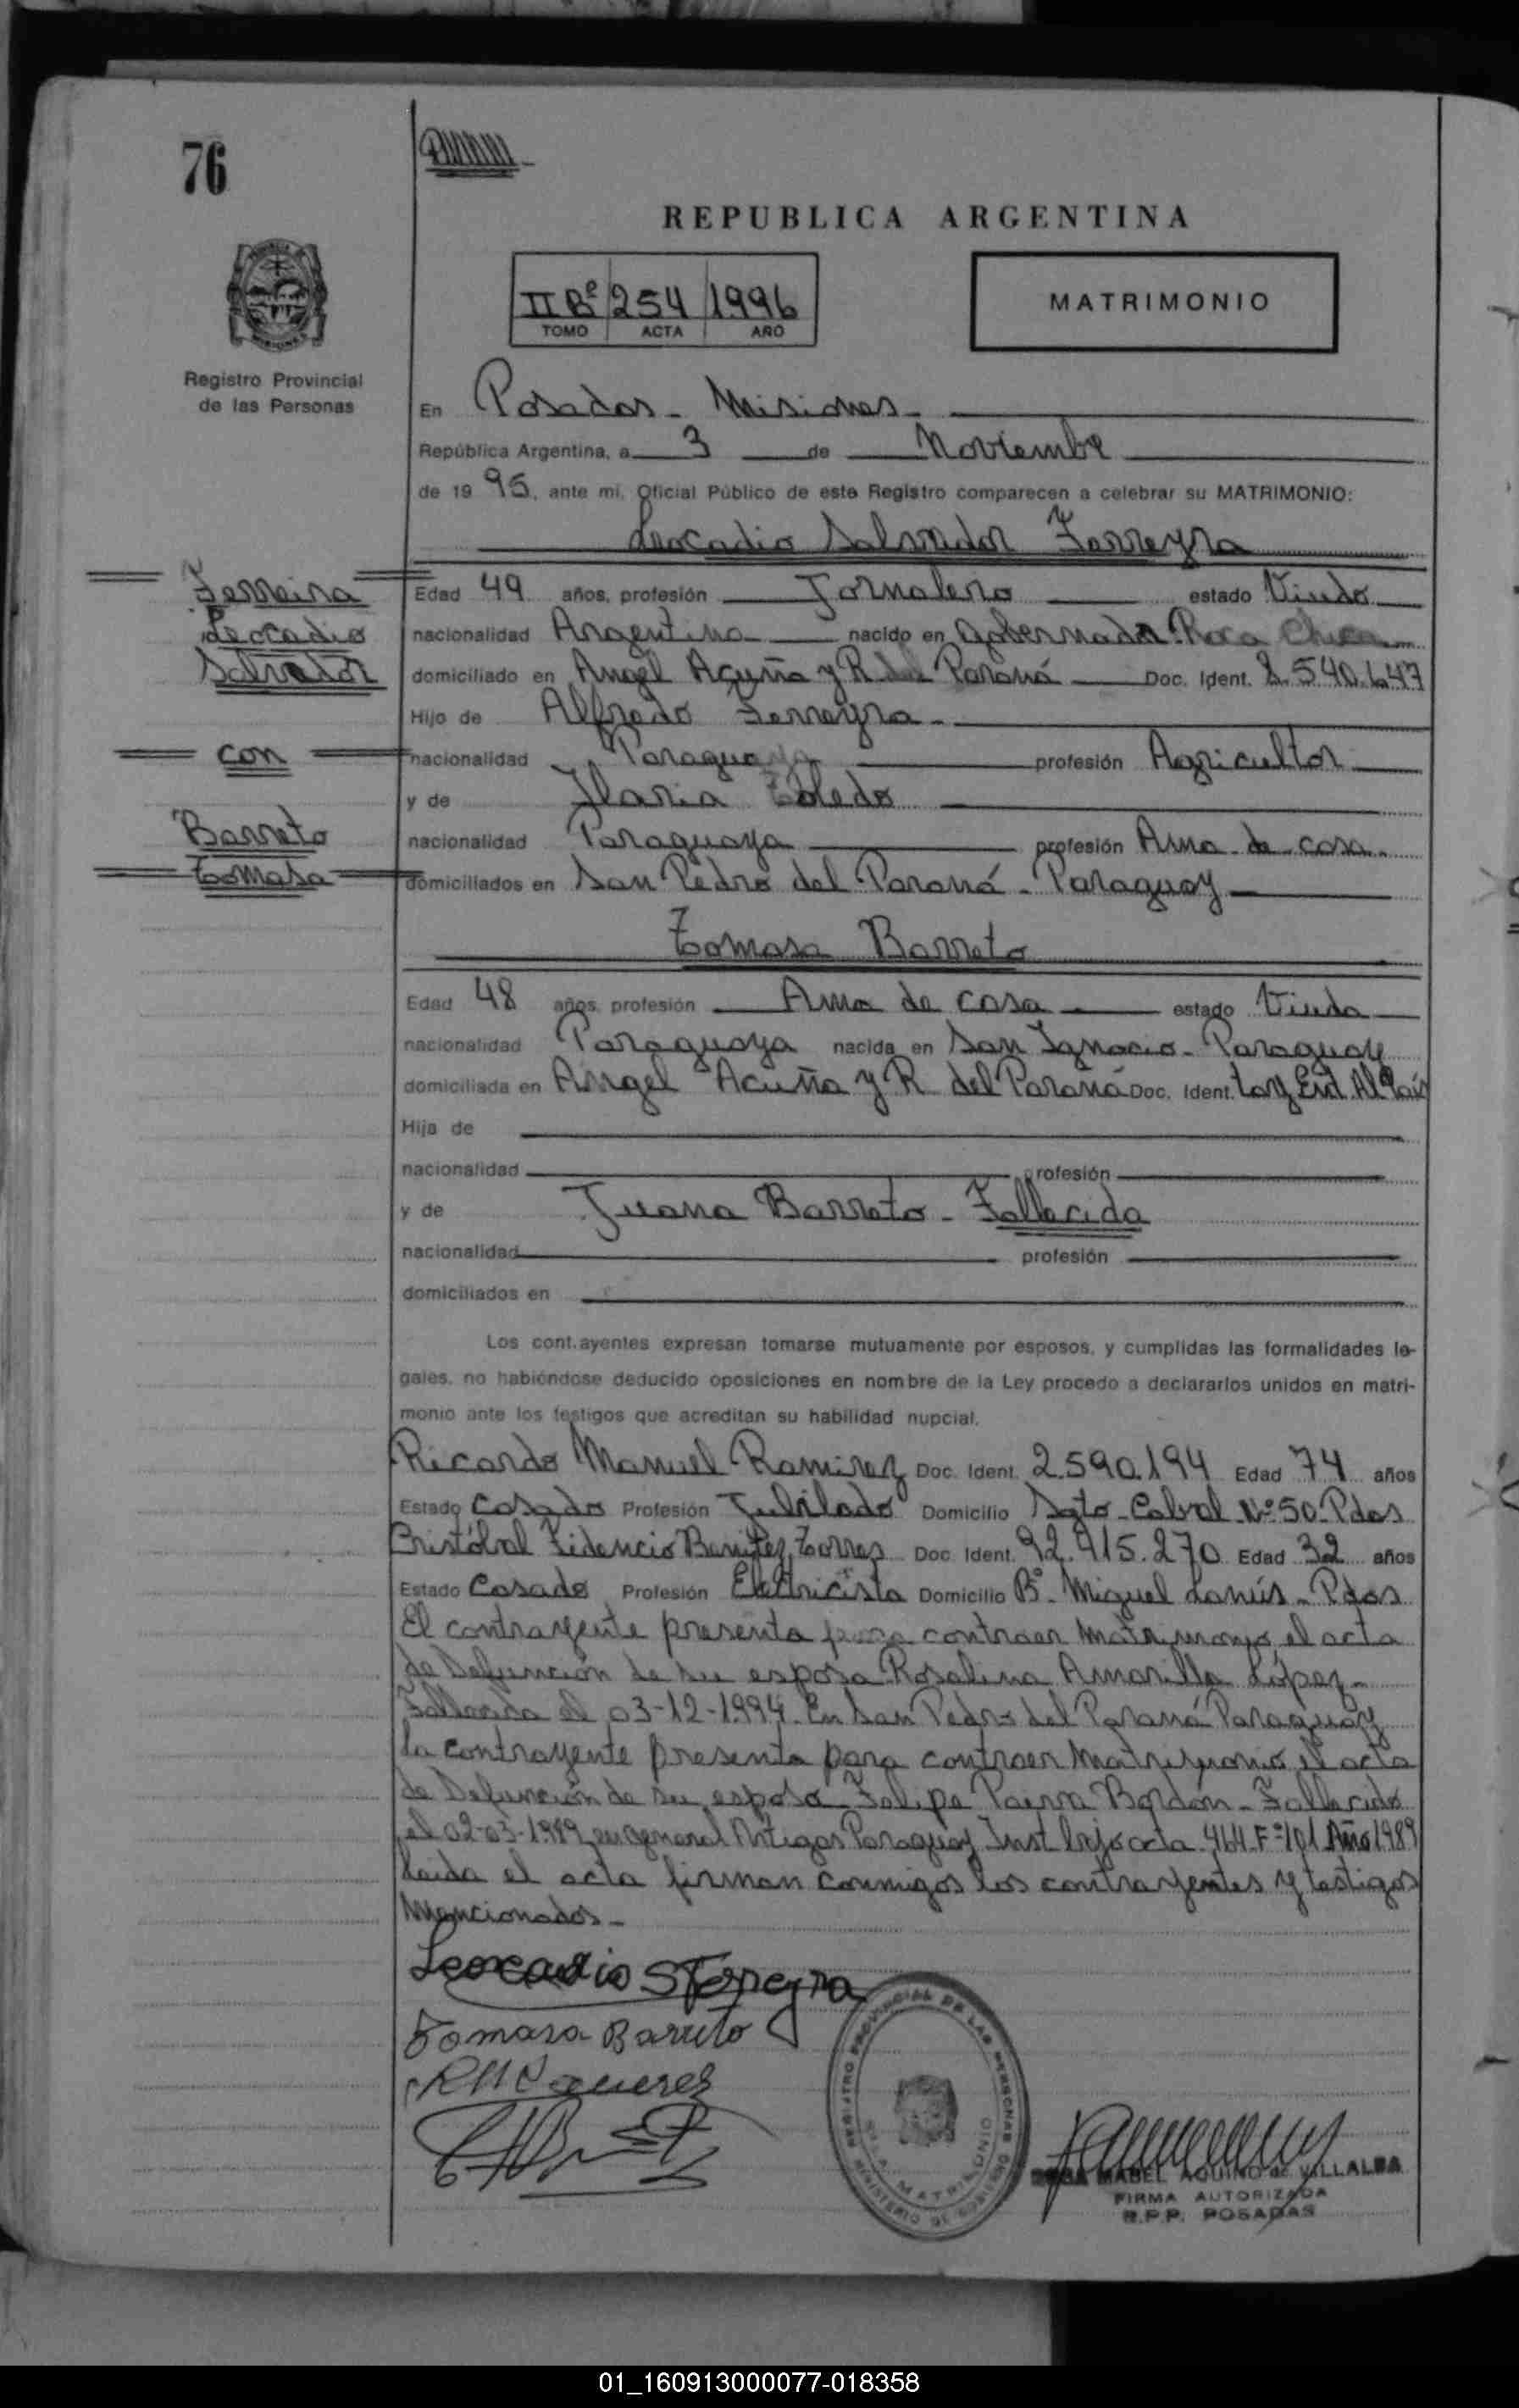 76
REPUBLICA ARGENTINA
II Bº 254 1996
TOMO ACTA AÑO
MATRIMONIO
Registro Provincial
de las Personas
En Posadas - Misiones -
República Argentina, a 3 de Noviembre
de 19 95, ante mí, Oficial Público de este Registro comparecen a celebrar su MATRIMONIO:
Leocadio Salvador Ferreyra
Ferreira
Leocadio
Salvador
con
Barreto
Tomasa
Edad 49 años, profesión Jornalero estado Viudo
nacionalidad Argentina nacido en Gobernador Roca
domiciliado en Angel Acuña y R del Paraná Doc. Ident. 8.540.647
Hijo de Alfredo Ferreyra -
nacionalidad Paraguaya profesión Agricultor
y de Ilaria Toledo
nacionalidad Paraguaya profesión Ama de casa
domiciliados en San Pedro del Paraná - Paraguay
Tomasa Barreto
Edad 48 años, profesión Ama de casa estado Viuda
nacionalidad Paraguaya nacida en San Ignacio - Paraguay
domiciliada en Angel Acuña y R del Paraná Doc. Ident. Al País
Hija de
nacionalidad profesión
y de Juana Barreto - Fallecida
nacionalidad profesión
domiciliados en
Los contrayentes expresan tomarse mutuamente por esposos, y cumplidas las formalidades le-
gales, no habiéndose deducido oposiciones en nombre de la Ley procedo a declararlos unidos en matri-
monio ante los testigos que acreditan su habilidad nupcial.
Ricardo Manuel Ramirez Doc. Ident. 2.590.194 Edad 74 años
Estado Casado Profesión Jubilado Domicilio Sgto - Cabral Nº 50 - Pdas
Cristóbal Fidencio Benitez Torres Doc. Ident. 92.915.270 Edad 32 años
Estado Casado Profesión Electricista Domicilio Bº - Miguel Lanús - Pdas
El contrayente presenta para contraer Matrimonio el acta
de Defunción de su esposa Rosalina Amarilla López -
Fallecida el 03-12-1994. En San Pedro del Paraná Paraguay
La contrayente presenta para contraer Matrimonio el acta
de Defunción de su esposo Felipe Bordón - Fallecido
el 02-03-1989 en General Artigas Paraguay Inst bajo acta 464 Fº 101 Año 1989
Leida el acta firman conmigos los contrayentes y testigos
Mencionados -
Leocadio S Ferreyra
Tomasa Barreto
REGISTRO PROVINCIAL DE LAS PERSONAS
MATRIMONIO
MABEL AQUINO de VILLALBA
FIRMA AUTORIZADA
R.P.P. POSADAS
01_160913000077-018358